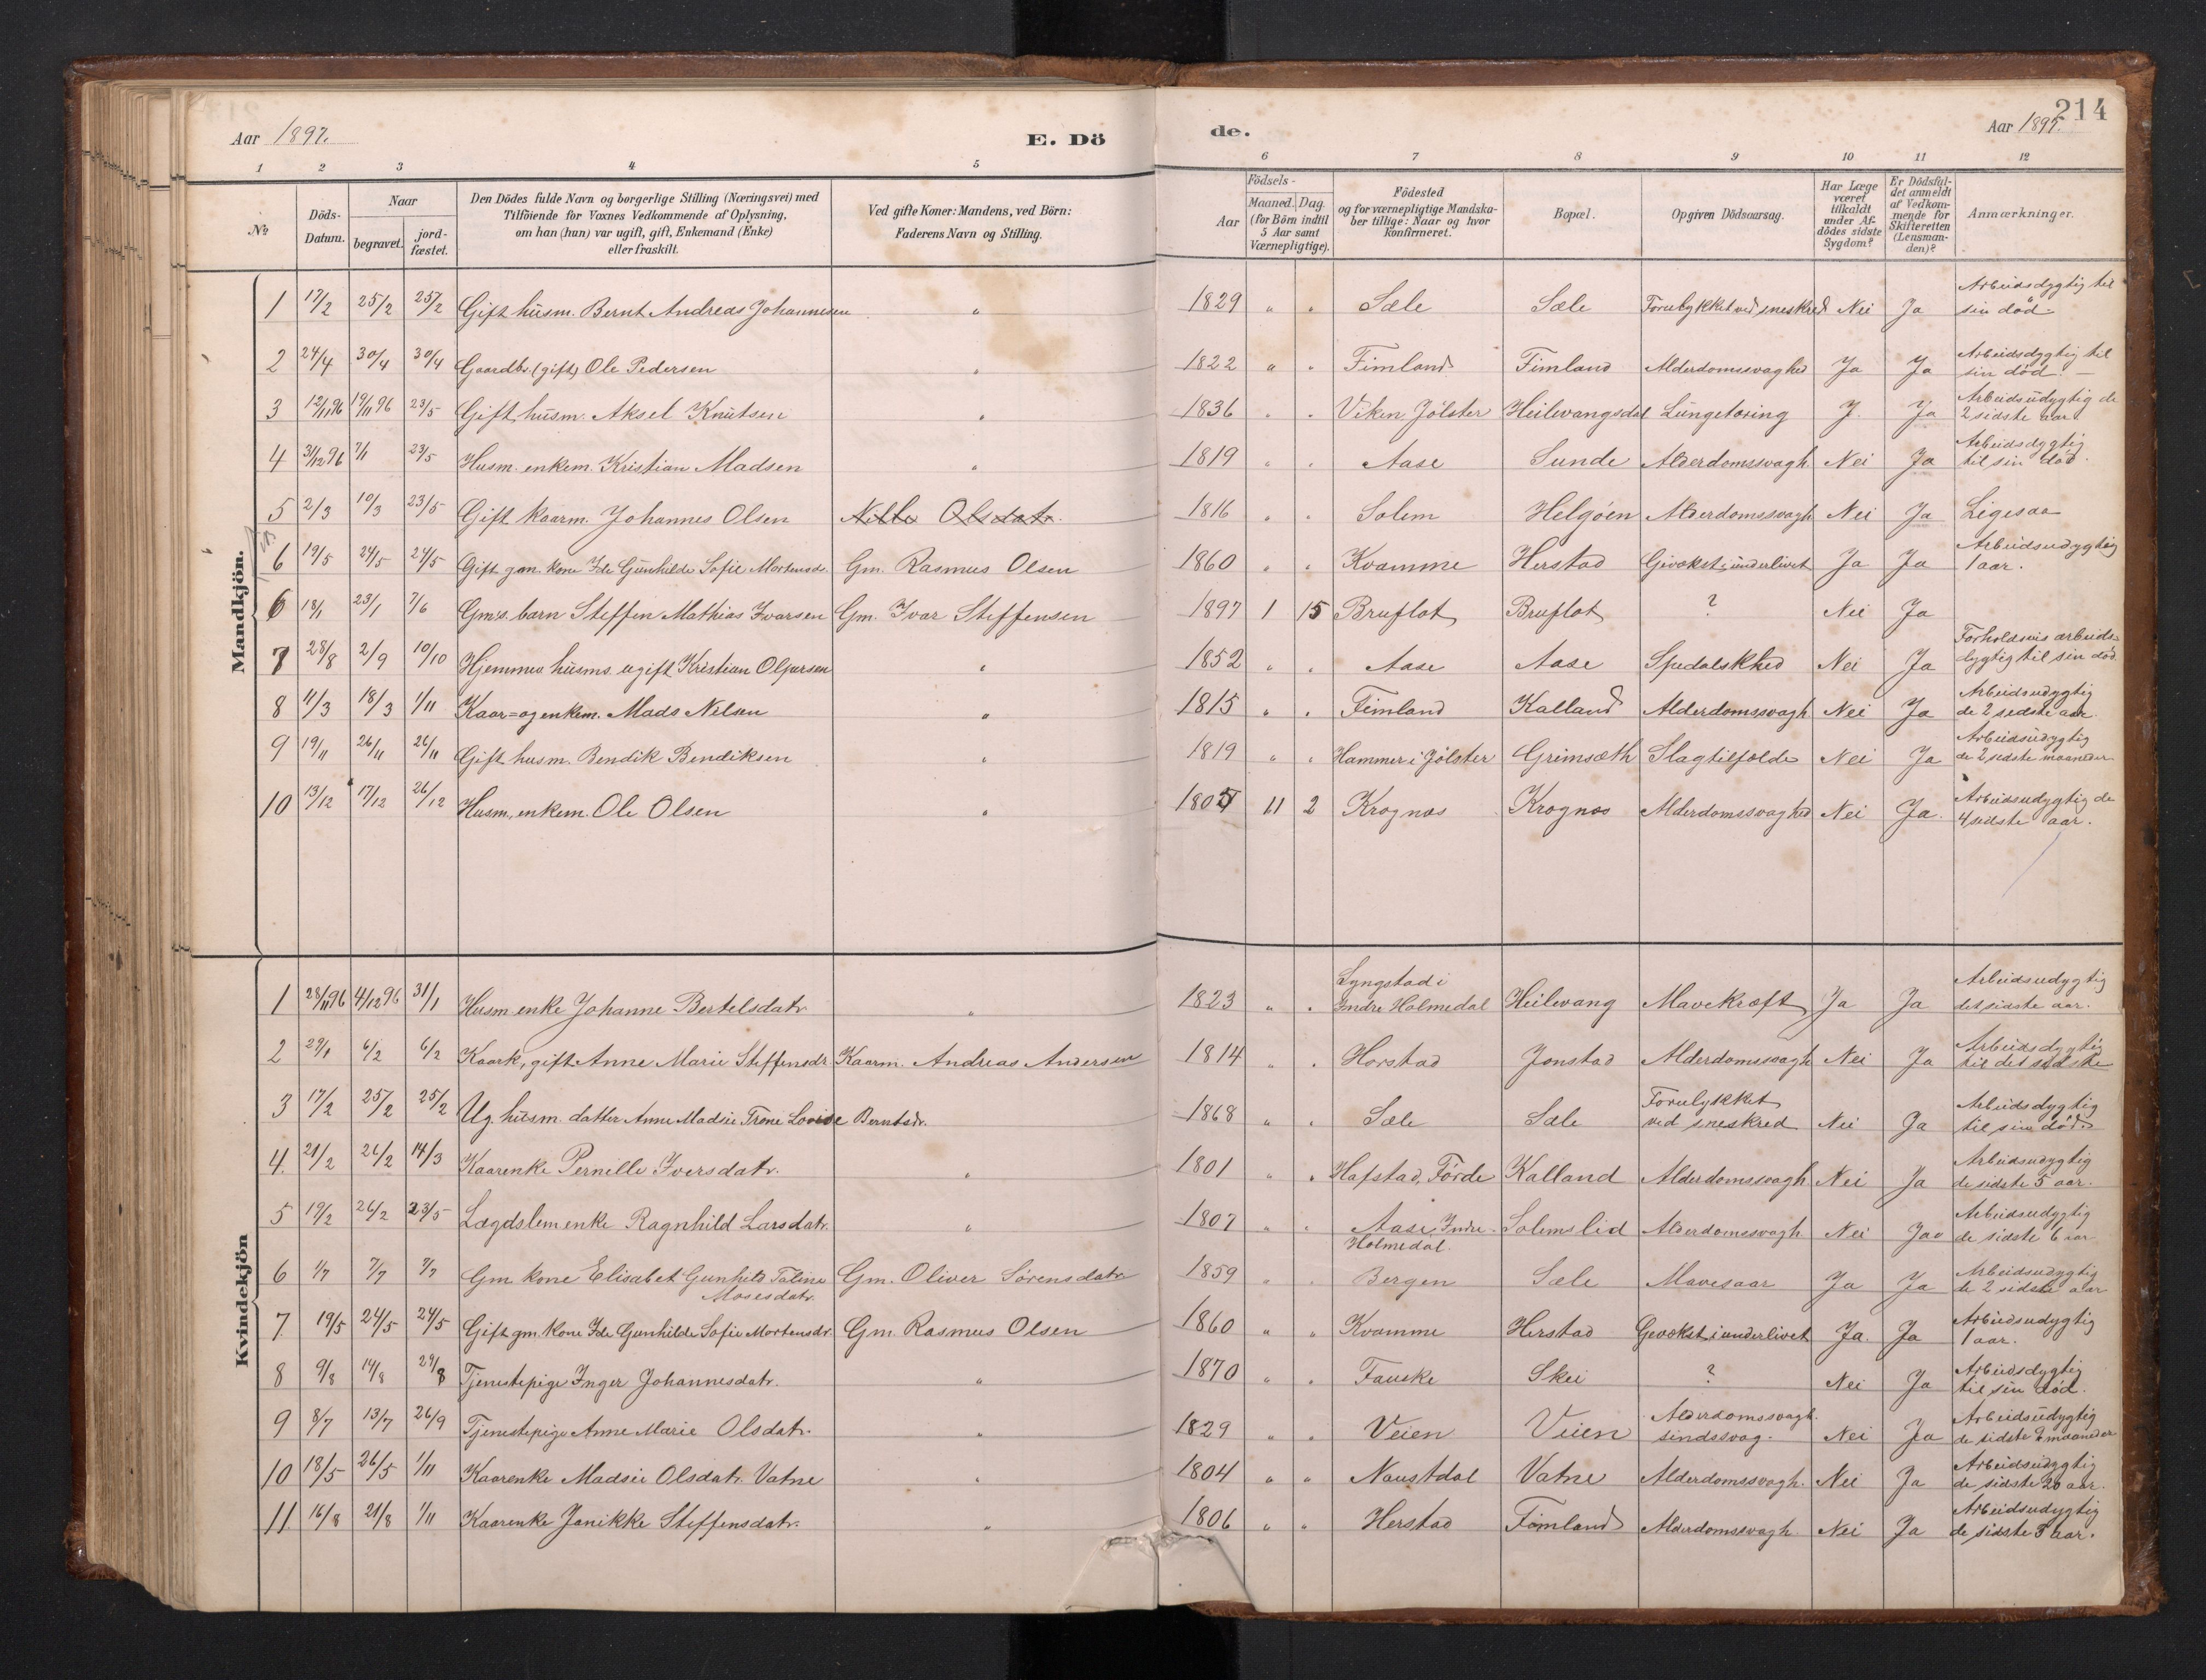 214
Aar 1897.
E. Dö
de.
Aar 1897.
1 2 3 4 5 6 7 8 9 10 11 12
No
Döds-Datum.
Naar
begravet.
jord-fæstet.
Den Dödes fulde Navn og borgerlige Stilling (Næringsvei) med
Tilföiende for Voxnes Vedkommende af Oplysning,
om han (hun) var ugift, gift, Enkemand (Enke)
eller fraskilt.
Ved gifte Koner: Mandens, ved Börn:
Faderens Navn og Stilling.
Födsels-
Aar
Maaned. Dag.
(for Börn indtil
5 Aar samt
Værnepligtige).
Födested
og for værnepligtige Mandska-
ber tillige: Naar og hvor
konfirmeret.
Bopæl.
Opgiven Dödsaarsag.
Har Læge
været
tilkaldt
under Af-
dödes sidste
Sygdom?
Er Dödsfal-
det anmeldt
af Vedkom-
mende for
Skifteretten
(Lensman-
den)?
Anmærkninger.
Mandkjön.
1 17/2 25/2 25/2 Gift husm. Bernt Andreas Johannesen " 1829 " " Sæle Sæle Forulykket ved sneskred Nei Ja Arbeidsdygtig til sin död.
2 24/4 30/4 30/4 Gaardbr. (gift) Ole Pedersen " 1822 " " Fimland Fimland Alderdomssvaghed Ja Ja Arbeidsdygtig til sin död. —
3 12/11 96 19/11 96 23/5 Gift husm. Aksel Knutsen " 1836 " " Viken Jölster Heilevangsdal Lungetæring J. Ja Arbeidsudygtig de 2 sidste aar.
4 31/12 96 7/1 23/5 Husm. enkem. Kristian Madsen " 1819 " " Aase Sunde Alderdomsvagh. Nei Ja Arbeidsdygtig til sin död.
5 2/3 10/3 23/5 Gift kaarm. Johannes Olsen Nille Olsdatr. 1816 " " Solem Helgöen Alderdomssvagh. Nei Ja Ligesaa
6 19/5 24/5 24/5 Gift gm. kone Ide Gunhilde Sofie Mortensdr. Gm. Rasmus Olsen 1860 " " Kvamme Herstad Gevækst i underlivet Ja Ja Arbeidsudygtig 1 aar.
6 18/1 23/1 7/6 Gms. barn Steffen Mathias Ivarsen Gm. Ivar Steffensen 1897 1 15 Bruflot Bruflot ? Nei Ja
7 28/8 2/9 10/10 Hjemmev. husms. ugift Kristian Oljarsen " 1852 " " Aase Aase Spedalskhed Nei Ja Forholdsvis arbeids-dygtig til sin död
8 11/3 18/3 1/11 Kaar= og enkem. Mads Nilsen " 1815 " " Fimland Kalland Alderdomssvagh Nei Ja Arbeidsudygtig de 2 sidste aar.
9 19/11 26/11 26/11 Gift husm. Bendik Bendiksen " 1819 " " Hammer i Jölster Grimsæth Slagtilfælde Nei Ja Arbeidsudygtig de 2 sidste maaneder.
10 13/12 17/12 26/12 Husm. enkem. Ole Olsen " 1805 11 2 Krognæs Krognæs Alderdomssvaghed Nei Ja. Arbeidsudygtig de 4 sidste aar.
Kvindekjön
1 28/11 96 4/12 96 31/1 Husm. enke Johanne Bertelsdatr " 1823 " " Lyngstad i Indre Holmedal Heilevang Mavekræft Ja Ja Arbeidsudygtig det sidste aar.
2 29/1 6/2 6/2 Kaark., gift Anne Marie Steffensdr. Kaarm. Andreas Andersen 1814 " " Horstad Jonstad Alderdomssvagh Nei Ja Arbeidsdygtig til det sidste
3 17/2 25/2 25/2 Ug. husm. datter Anne Madsie Trine Lovise Berntsdr. 1868 " " Sæle Sæle Forulykket ved sneskred Nei Ja Arbeidsdygtig til sin död
4. 21/2 26/2 14/3 Kaarenke Pernille Iversdatr. " 1801 " " Hafstad, Förde Kalland Alderdomssvagh. Nei Ja Arbeidsudygtig de sidste 5 aar.
5 19/2 26/2 23/5 Lægdslem enke Ragnhild Larsdatr. " 1807 " " Aase, Indre Holmedal. Solemslid Alderdomssvagh. Nei Ja Arbeidsudygtig de sidste 6 aar
6 1/7 7/7 7/7 Gm. kone Elisabet Gunhild Taline Mosesdatr. Gm. Oliver Sörensdatr 1859 " " Bergen Sæle Mavesaar Ja Ja Arbeidsudygtig de 2 sidste aar
7. 19/5 24/5 24/5 Gift gm. kone Ide Gunhilde Sofie Mortensdr. Gm. Rasmus Olsen 1860 " " Kvamme Herstad Gevækst i underlivet Ja. Ja Arbeidsudygtig 1 aar.
8 9/8 14/8 29/8 Tjenestepige Inger Johannesdatr. " 1870 " " Fauske Skei ? Nei Ja Arbeidsdygtig til sin död.
9 8/7 13/7 26/9 Tjenestepige Anne Marie Olsdatr. " 1829 " " Veien Veien Alderdomssvagh. sindssvag. Nei Ja Arbeidsudygtig de sidste 2 maaneder
10 18/5 26/5 1/11 Kaarenke Madsie Olsdatr. Vatne " 1804 " " Naustdal Vatne Alderdomssvagh. Nei Ja Arbeidsudygtig de sidste 20 aar.
11. 16/8 21/8 1/11 Kaarenke Janikke Steffensdatr. " 1806 " " Herstad Fimland Alderdomssvagh. Nei Ja Arbeidsudygtig de sidste 5 aar.